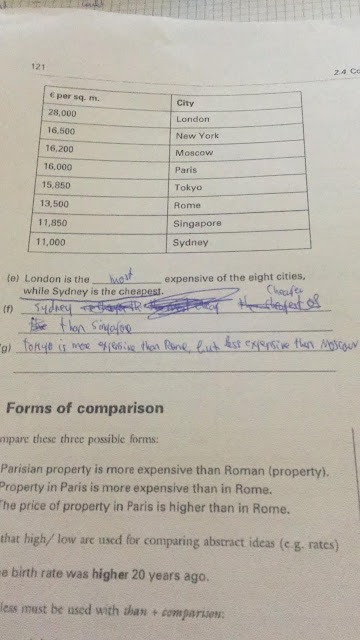 121
2.4 Co
€ per sq. m. City
28,000 London
16,500 New York
16,200 Moscow
16,000 Paris
15,850 Tokyo
13,500 Rome
11,850 Singapore
11,000 Sydney
(e) London is the most expensive of the eight cities,
while Sydney is the cheapest.
Cheaper
(f) Sydney
than
g) Tokyo is more expensive than Rome, but less expensive than Moscow
Forms of comparison
mpare these three possible forms:
Parisian property is more expensive than Roman (property).
Property in Paris is more expensive than in Rome.
The price of property in Paris is higher than in Rome.
that high/ low are used for comparing abstract ideas (e.g. rates)
e birth rate was higher 20 years ago.
less must be used with than + comparison: